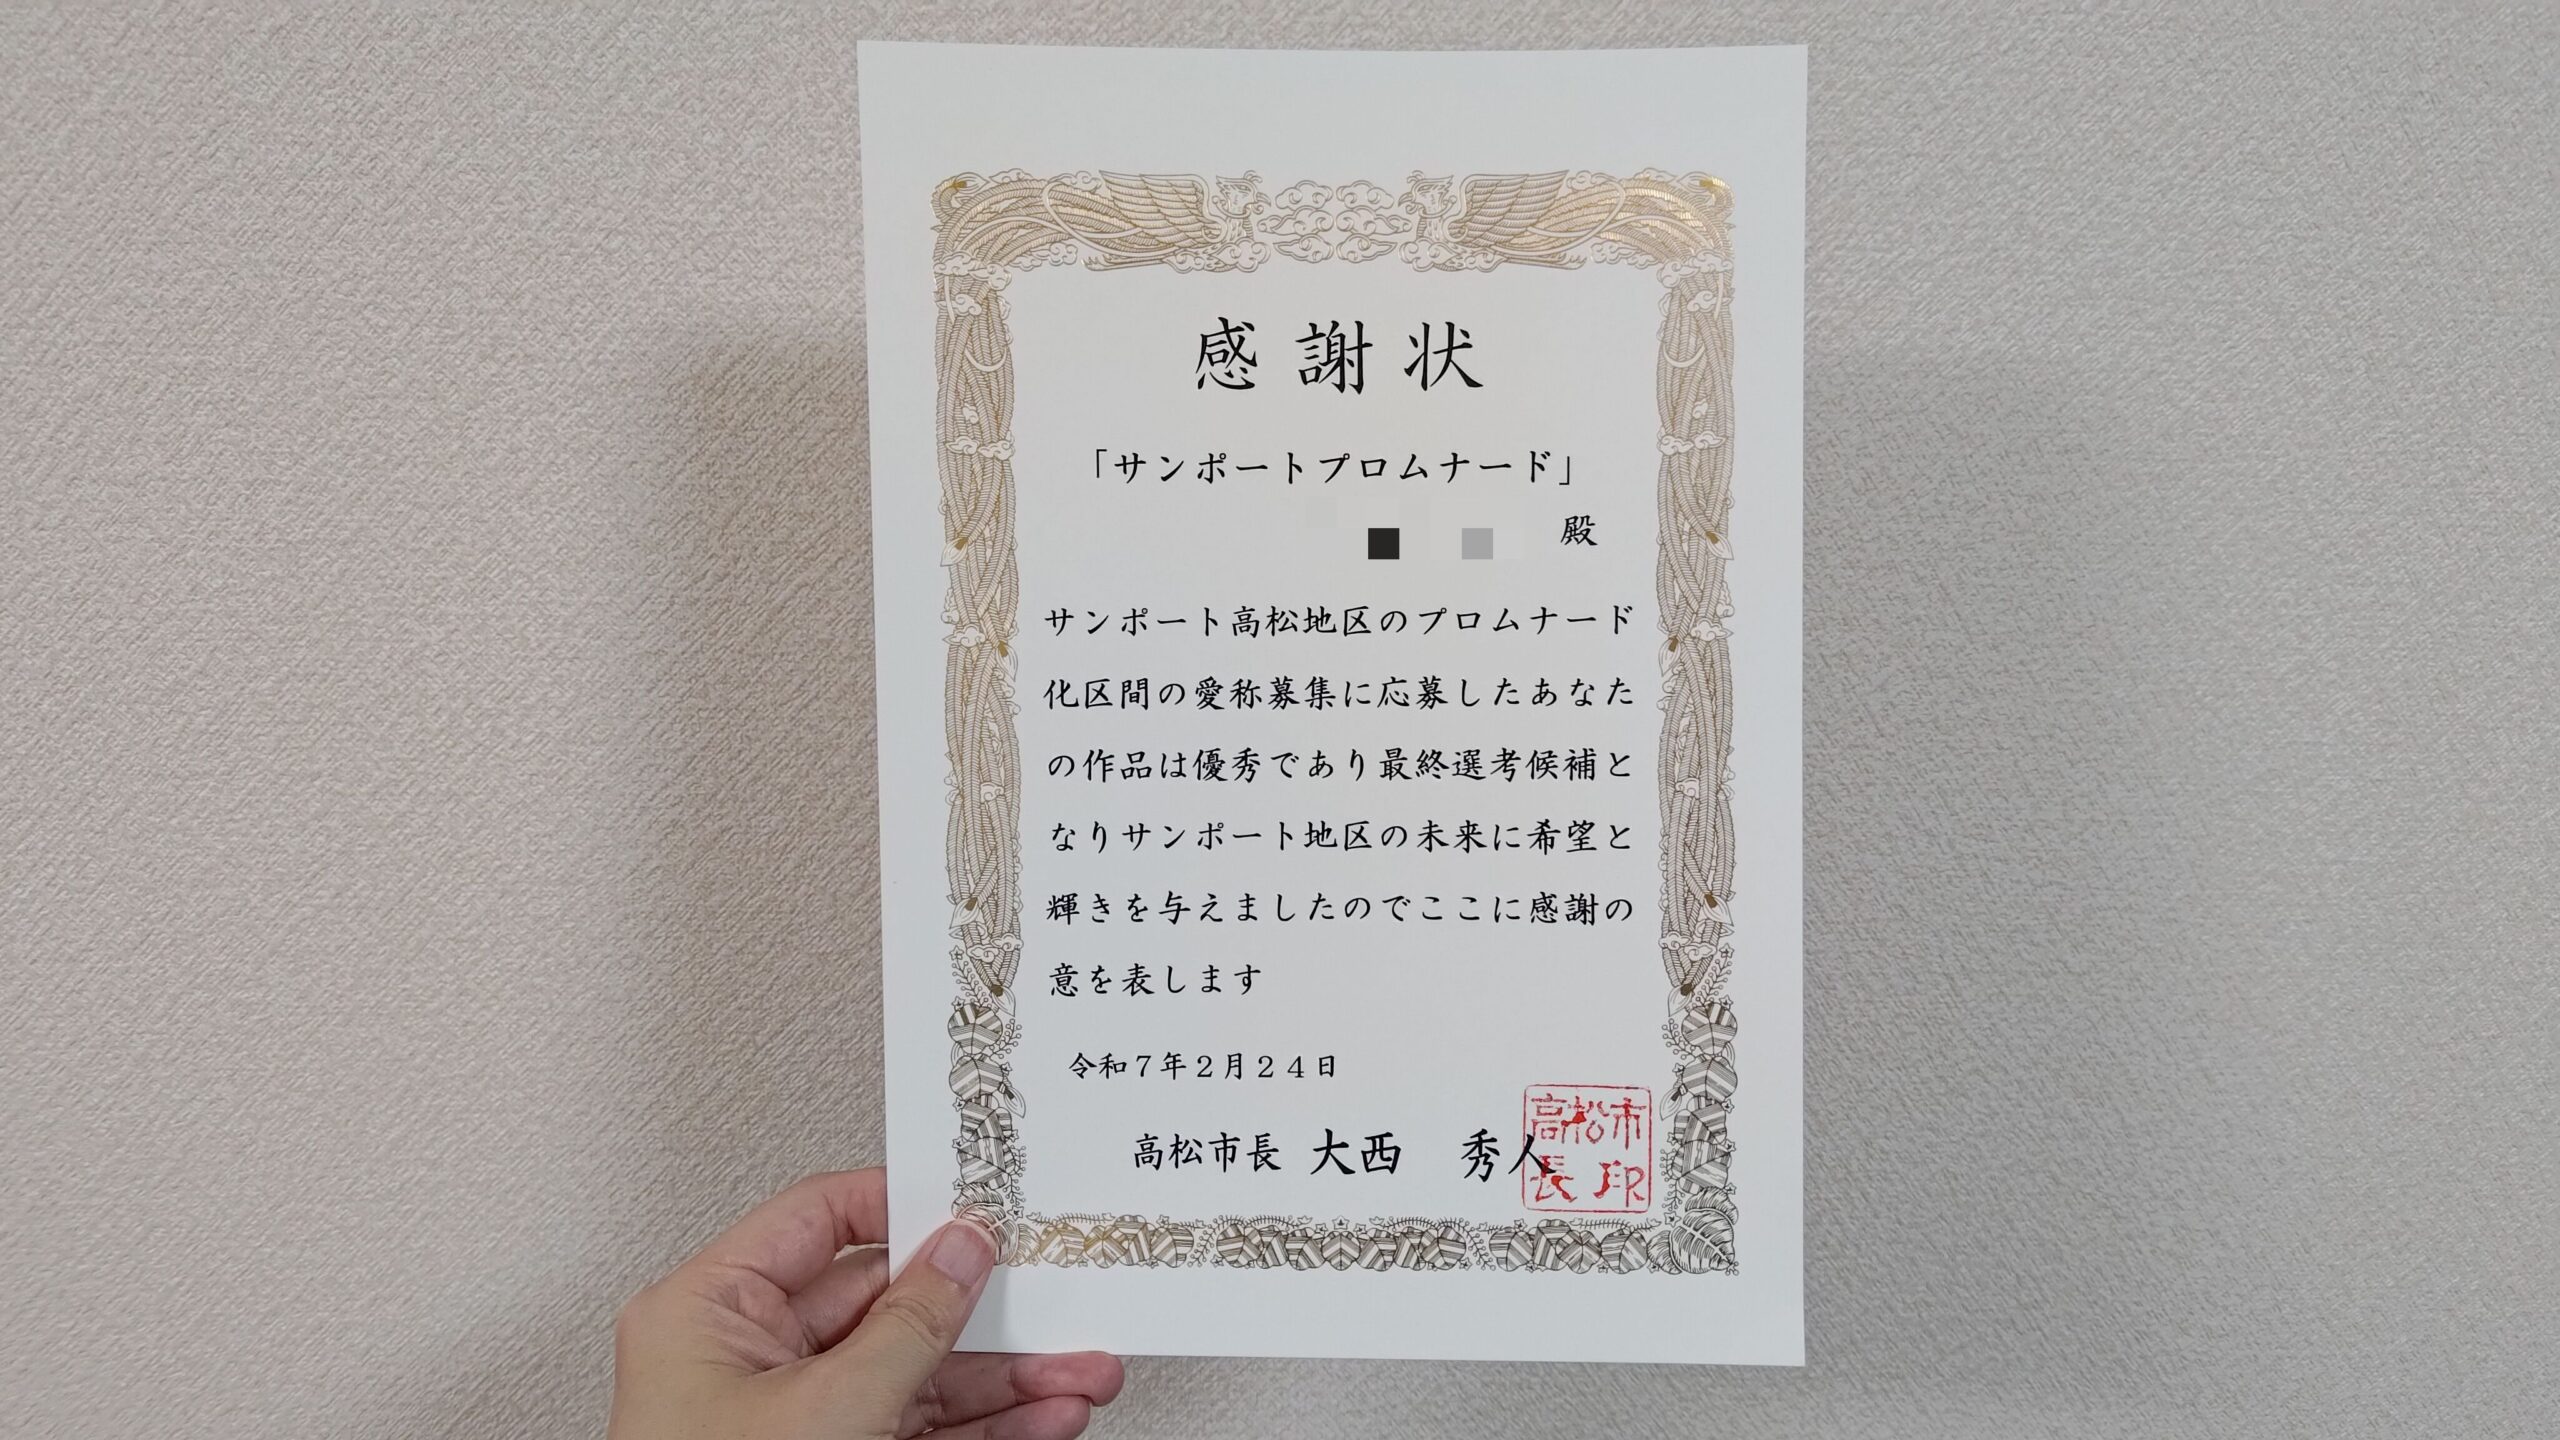 感謝状
「サンポートプロムナード」
殿
サンポート高松地区のプロムナード
化区間の愛称募集に応募したあなた
の作品は優秀であり最終選考候補と
なりサンポート地区の未来に希望と
輝きを与えましたのでここに感謝の
意を表します
令和7年2月24日
高松市長 大西 秀人
高松市
長印